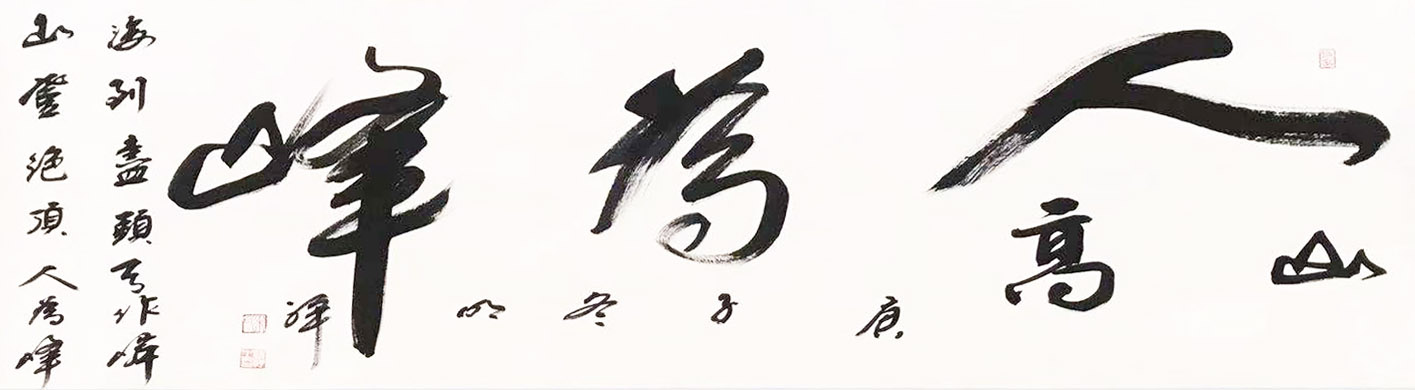 山高人為峰
庚子冬明
海到盡頭天作
山登絕頂人為峰